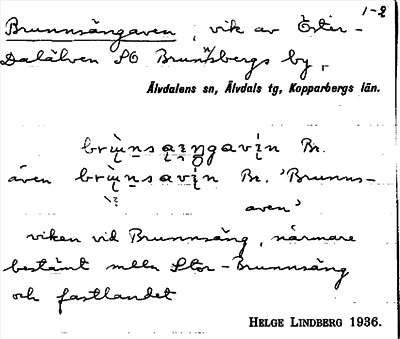 1-2
Brunnsängaven, vik av Öster-
Dalälven SO Brunnsbergs by,
Älvdalens sn, Älvdals tg, Kopparbergs län.
Br.
även Br. 'Brunns-
aven'
viken vid Brunnsäng, närmare
bestämt mellan Stor-Brunnsäng
och fastlandet
HELGE LINDBERG 1936.